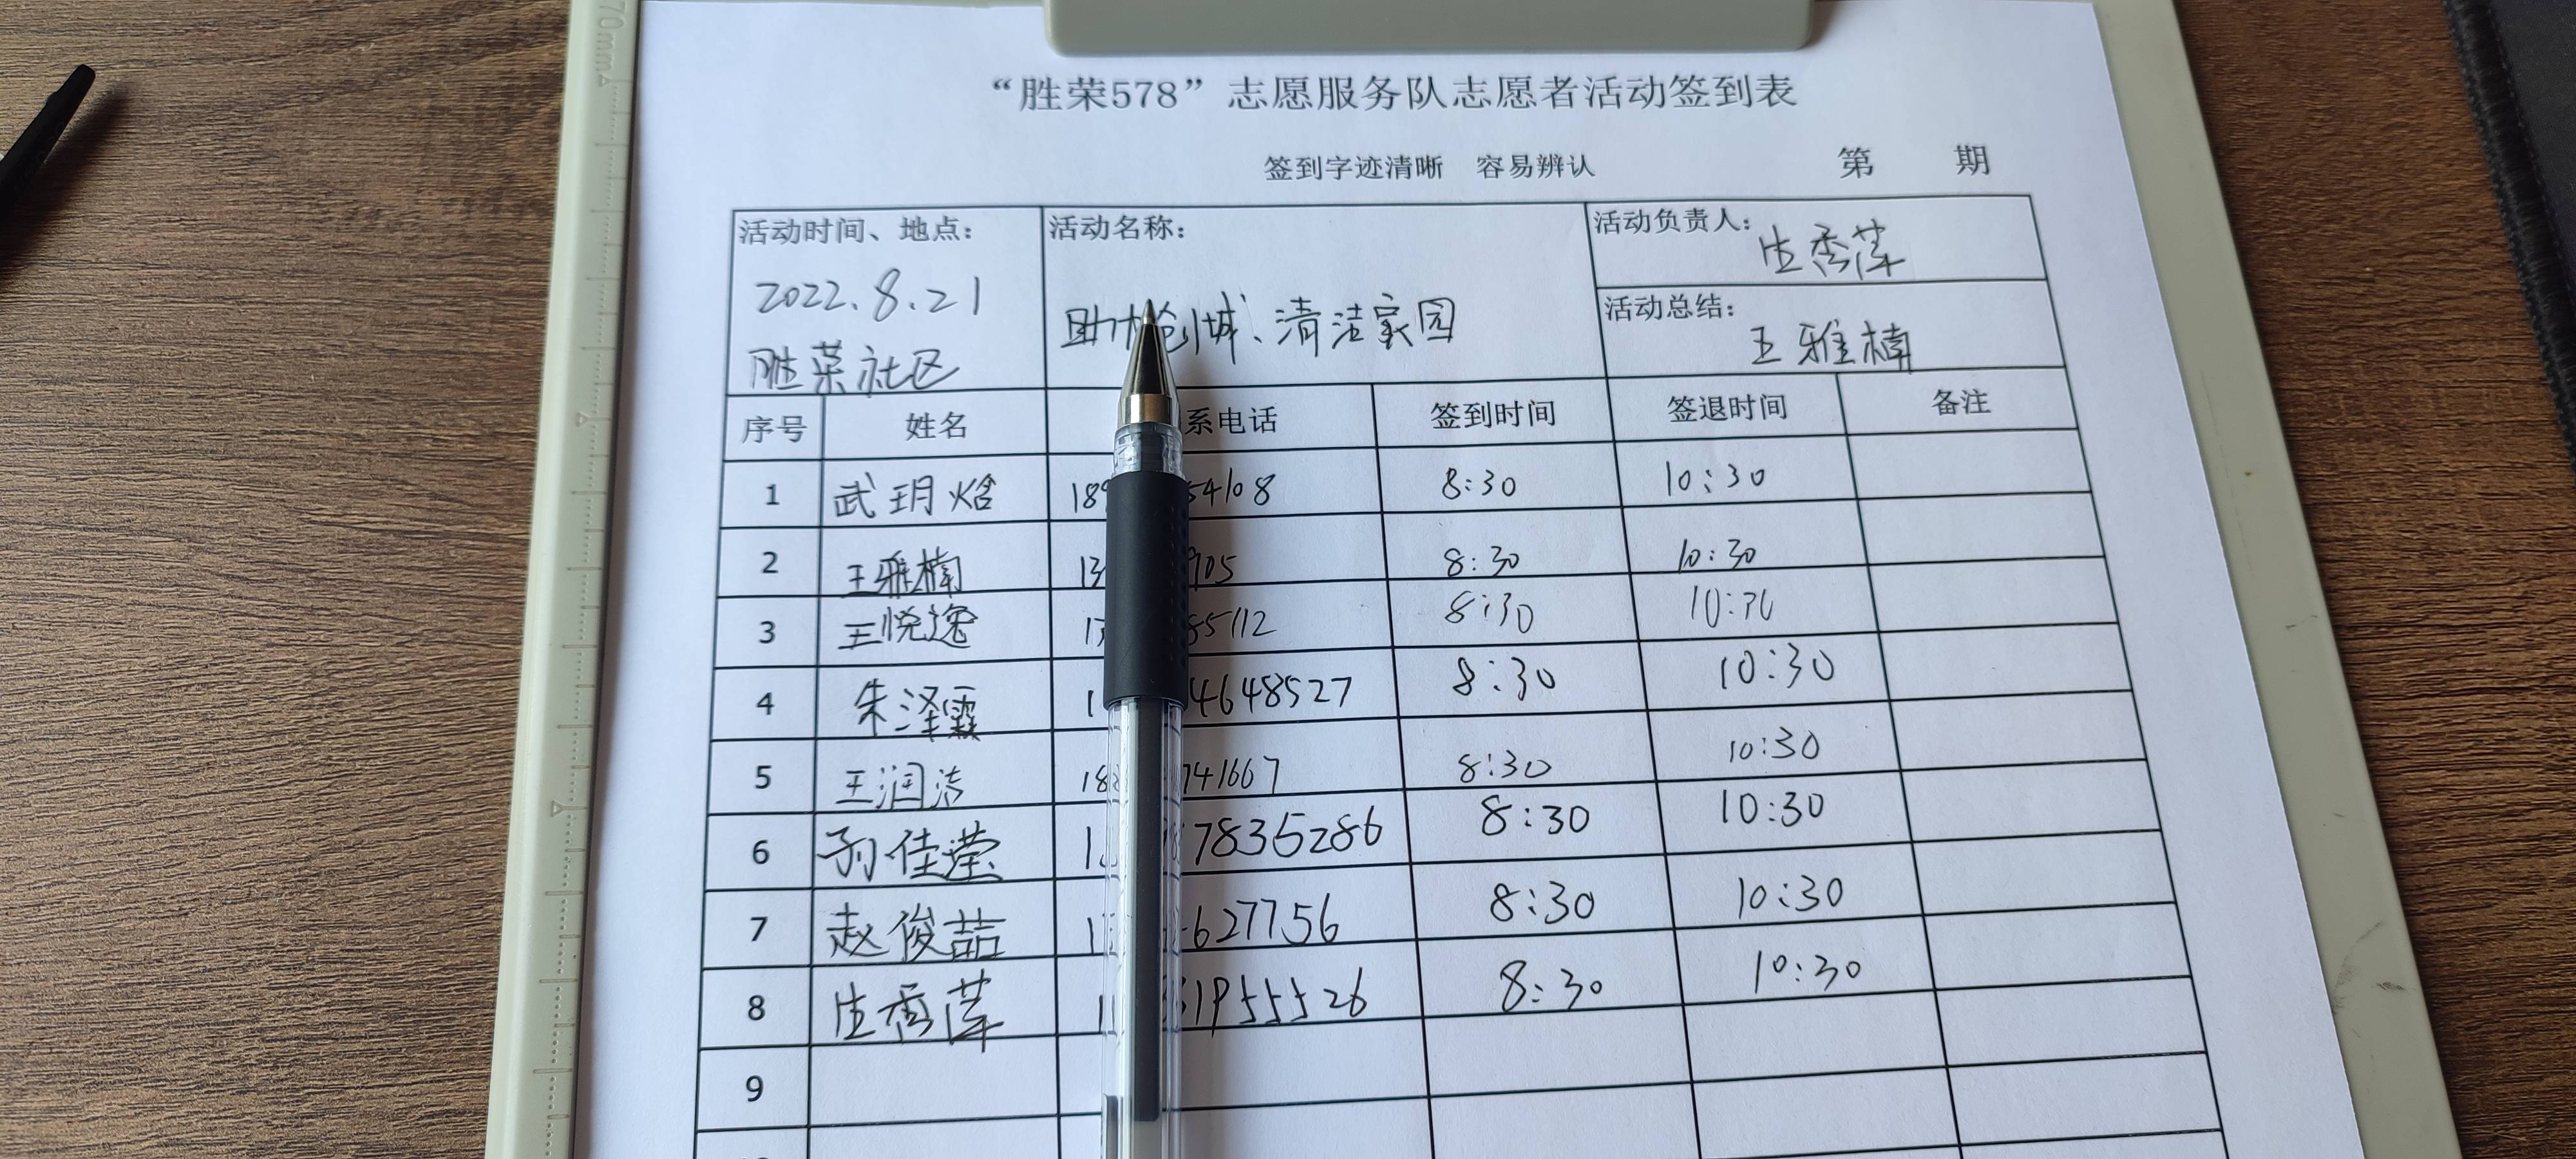 “胜荣578”志愿服务队志愿者活动签到表
签到字迹清晰 容易辨认 第 期
活动时间、地点： 活动名称： 活动负责人：
生秀萍
2022.8.21 助力创城、清洁家园 活动总结：
胜荣社区 王雅楠
序号 姓名 系电话 签到时间 签退时间 备注
1 武玥焓 189 54108 8:30 10:30
2 王雅楠 13 905 8:30 10:30
3 王悦逸 13 85112 8:30 10:30
4 朱泽霖 1 4648527 8:30 10:30
5 王润洁 188 741667 8:30 10:30
6 孙佳莹 1 7835286 8:30 10:30
7 赵俊喆 1 627756 8:30 10:30
8 生秀萍 1 1955526 8:30 10:30
9